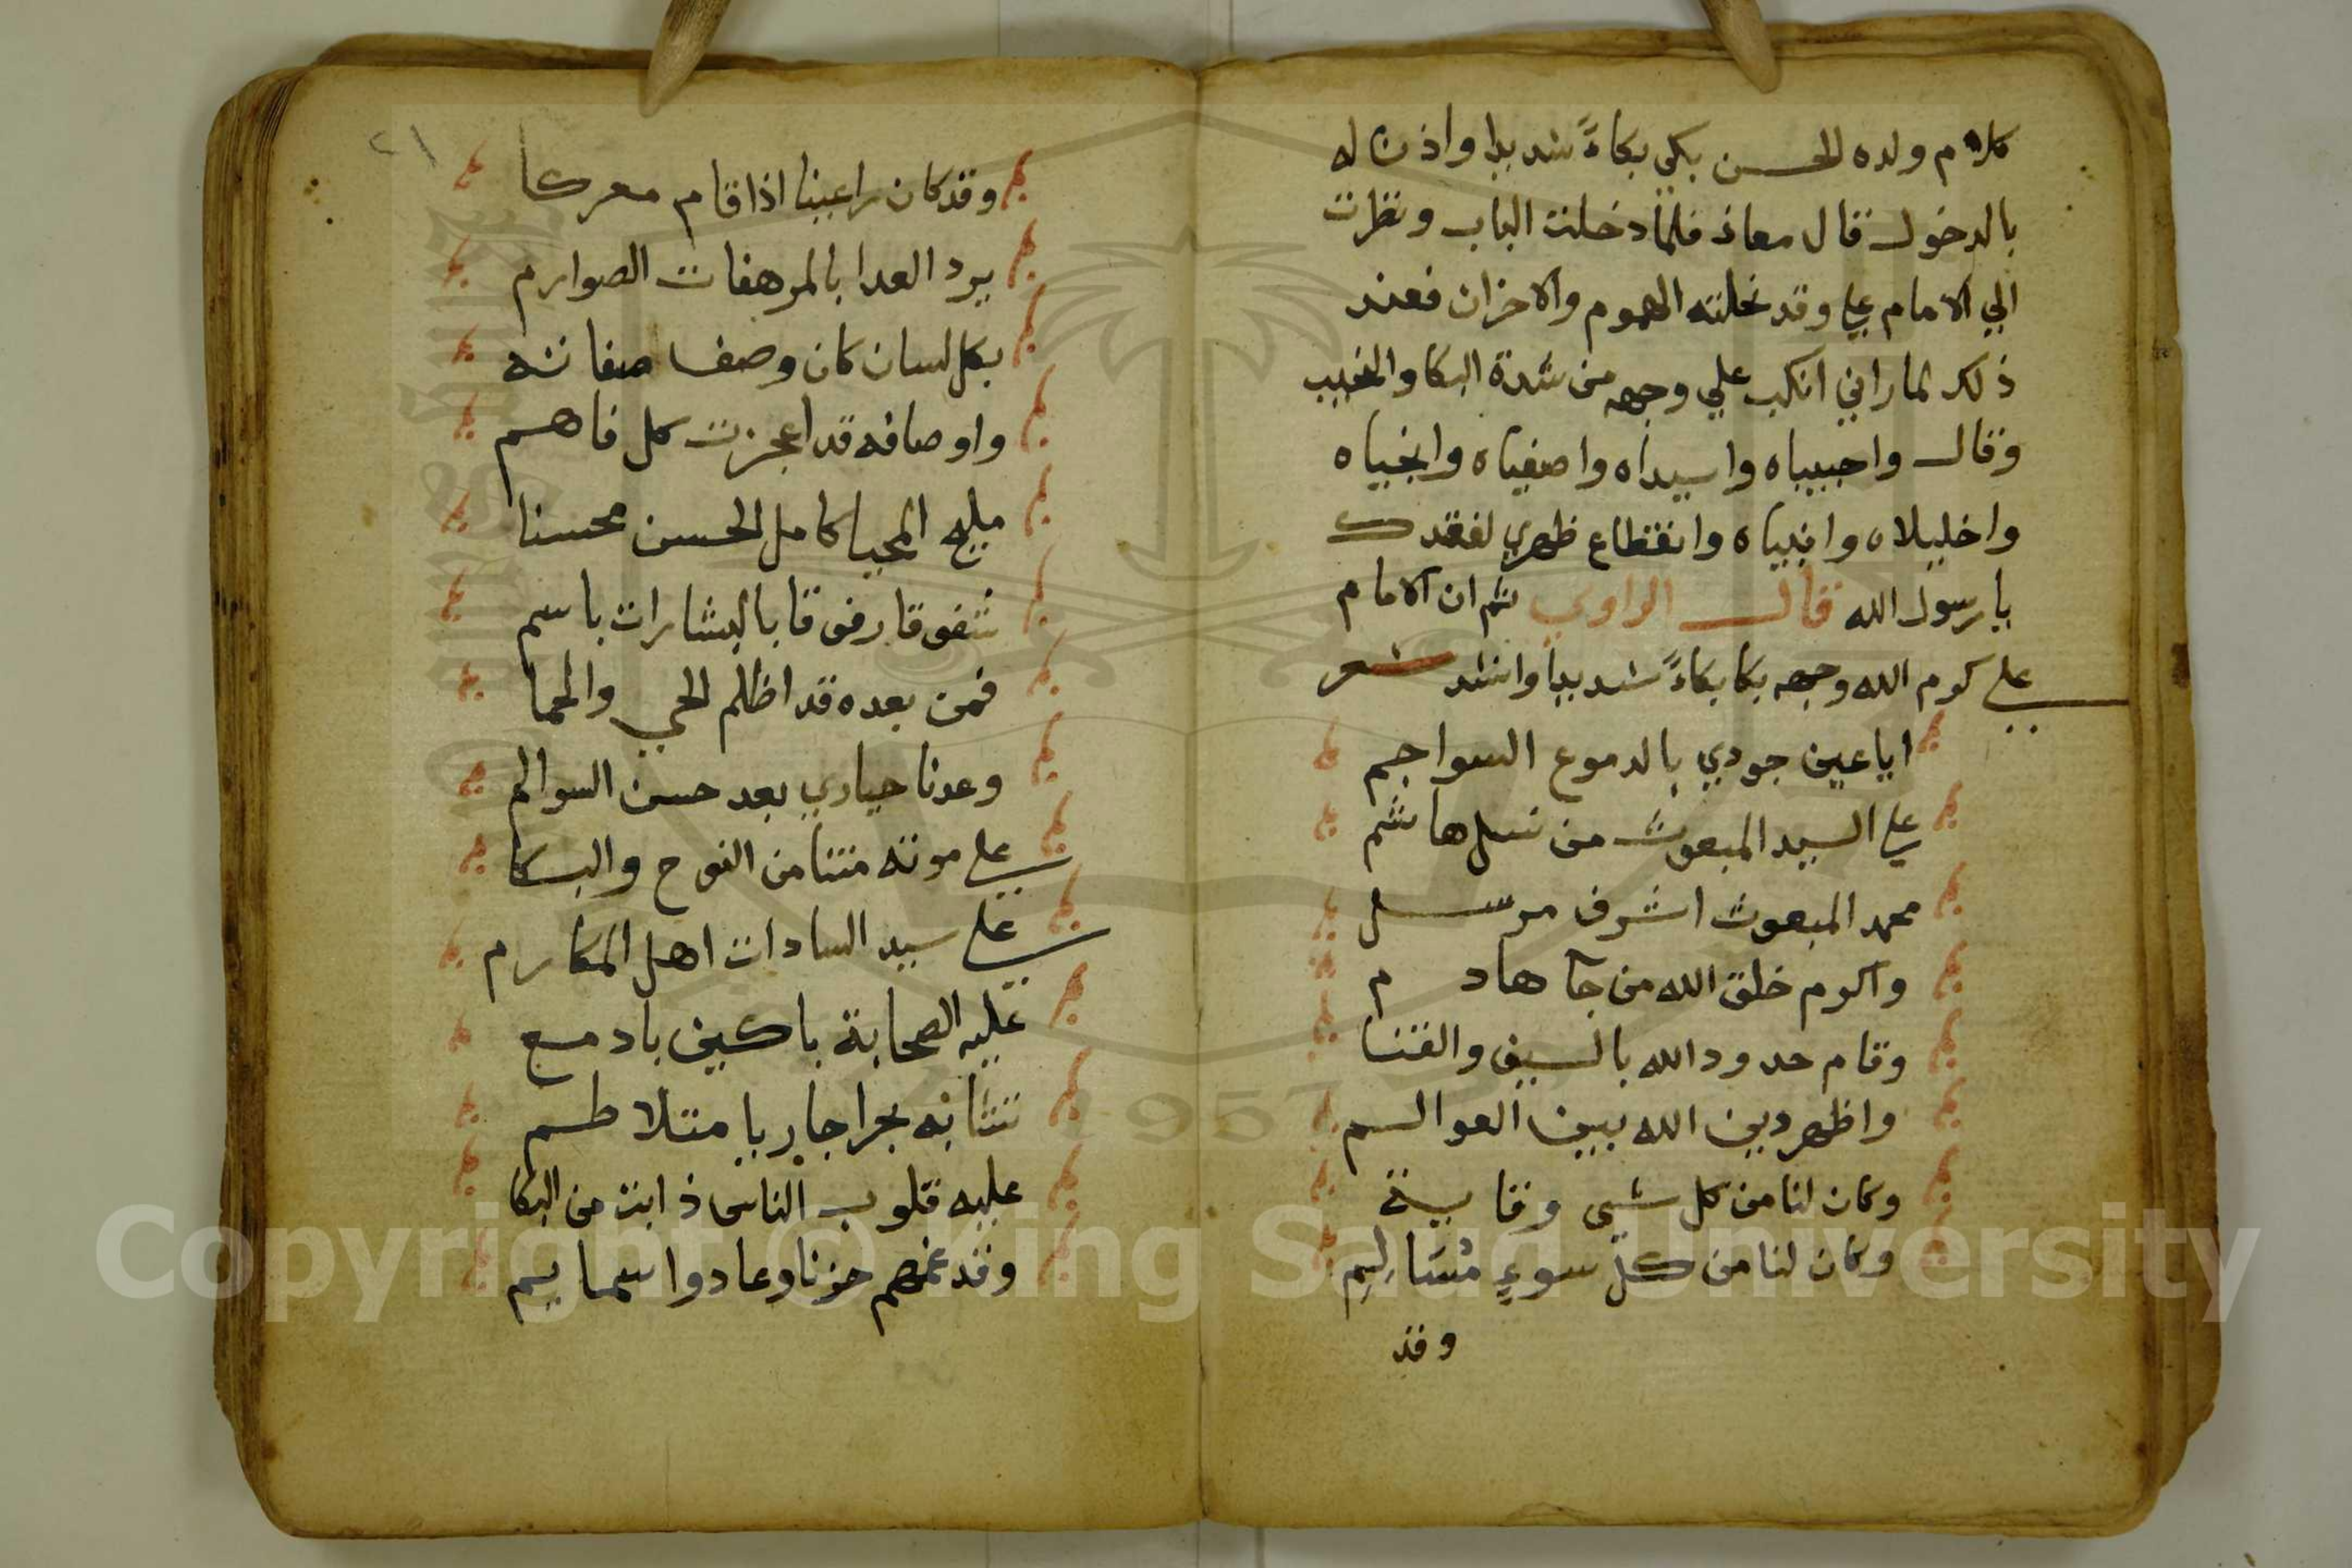 كلام ولده الحسن بكي بكاءً شديدا واذن له
بالدخول قال معاذ فلما دخلت الباب ونظرت
الي الامام علي وقد نحلته الهموم والاحزان فعند
ذلك لما راني انكب علي وجهه من شدة البكا والنحيب
وقال واحبيباه واسيداه واصفياه وانجياه
واخليلاه وانبياه وانقطاع ظهري لفقدك
يا رسول الله قال الراوي ثم ان الامام
علي كرم الله وجهه بكا بكاءً شديدا وانشد شعر
ايا عين جودي بالدموع السواجم
علي السيد المبعوث من نسل هاشم
محمد المبعوث اشرف مرسل
واكرم خلق الله من جآ هادم
وقام حدود الله بالسيف والقنا
واظهر دين الله بين العوالم
وكان لنا من كل شي وقاية
وكان لنا من كلّ سوءٍ مُسَالِمِ
وقد
٢١
وقد كان راعينا اذا قام معركا
يرد العدا بالمرهفات الصوارم
بكل لسان كان وصف صفاته
واوصافه قد اعجزت كل فاهم
مليح المحيا كامل الحسن محسنا
شفوقا رفوقا بالبشارات باسم
فمن بعده قد اظلم الحي والحما
وعدنا حياري بعد حسن السوالم
علي موته متنا من النوح والبكا
علي سيد السادات اهل المكارم
عليه الصحابة باكين بادمع
تشابه بحرا جاريا متلاطم
عليه قلوب الناس ذابت من البكا
وقد عمهم حزنا وعادوا